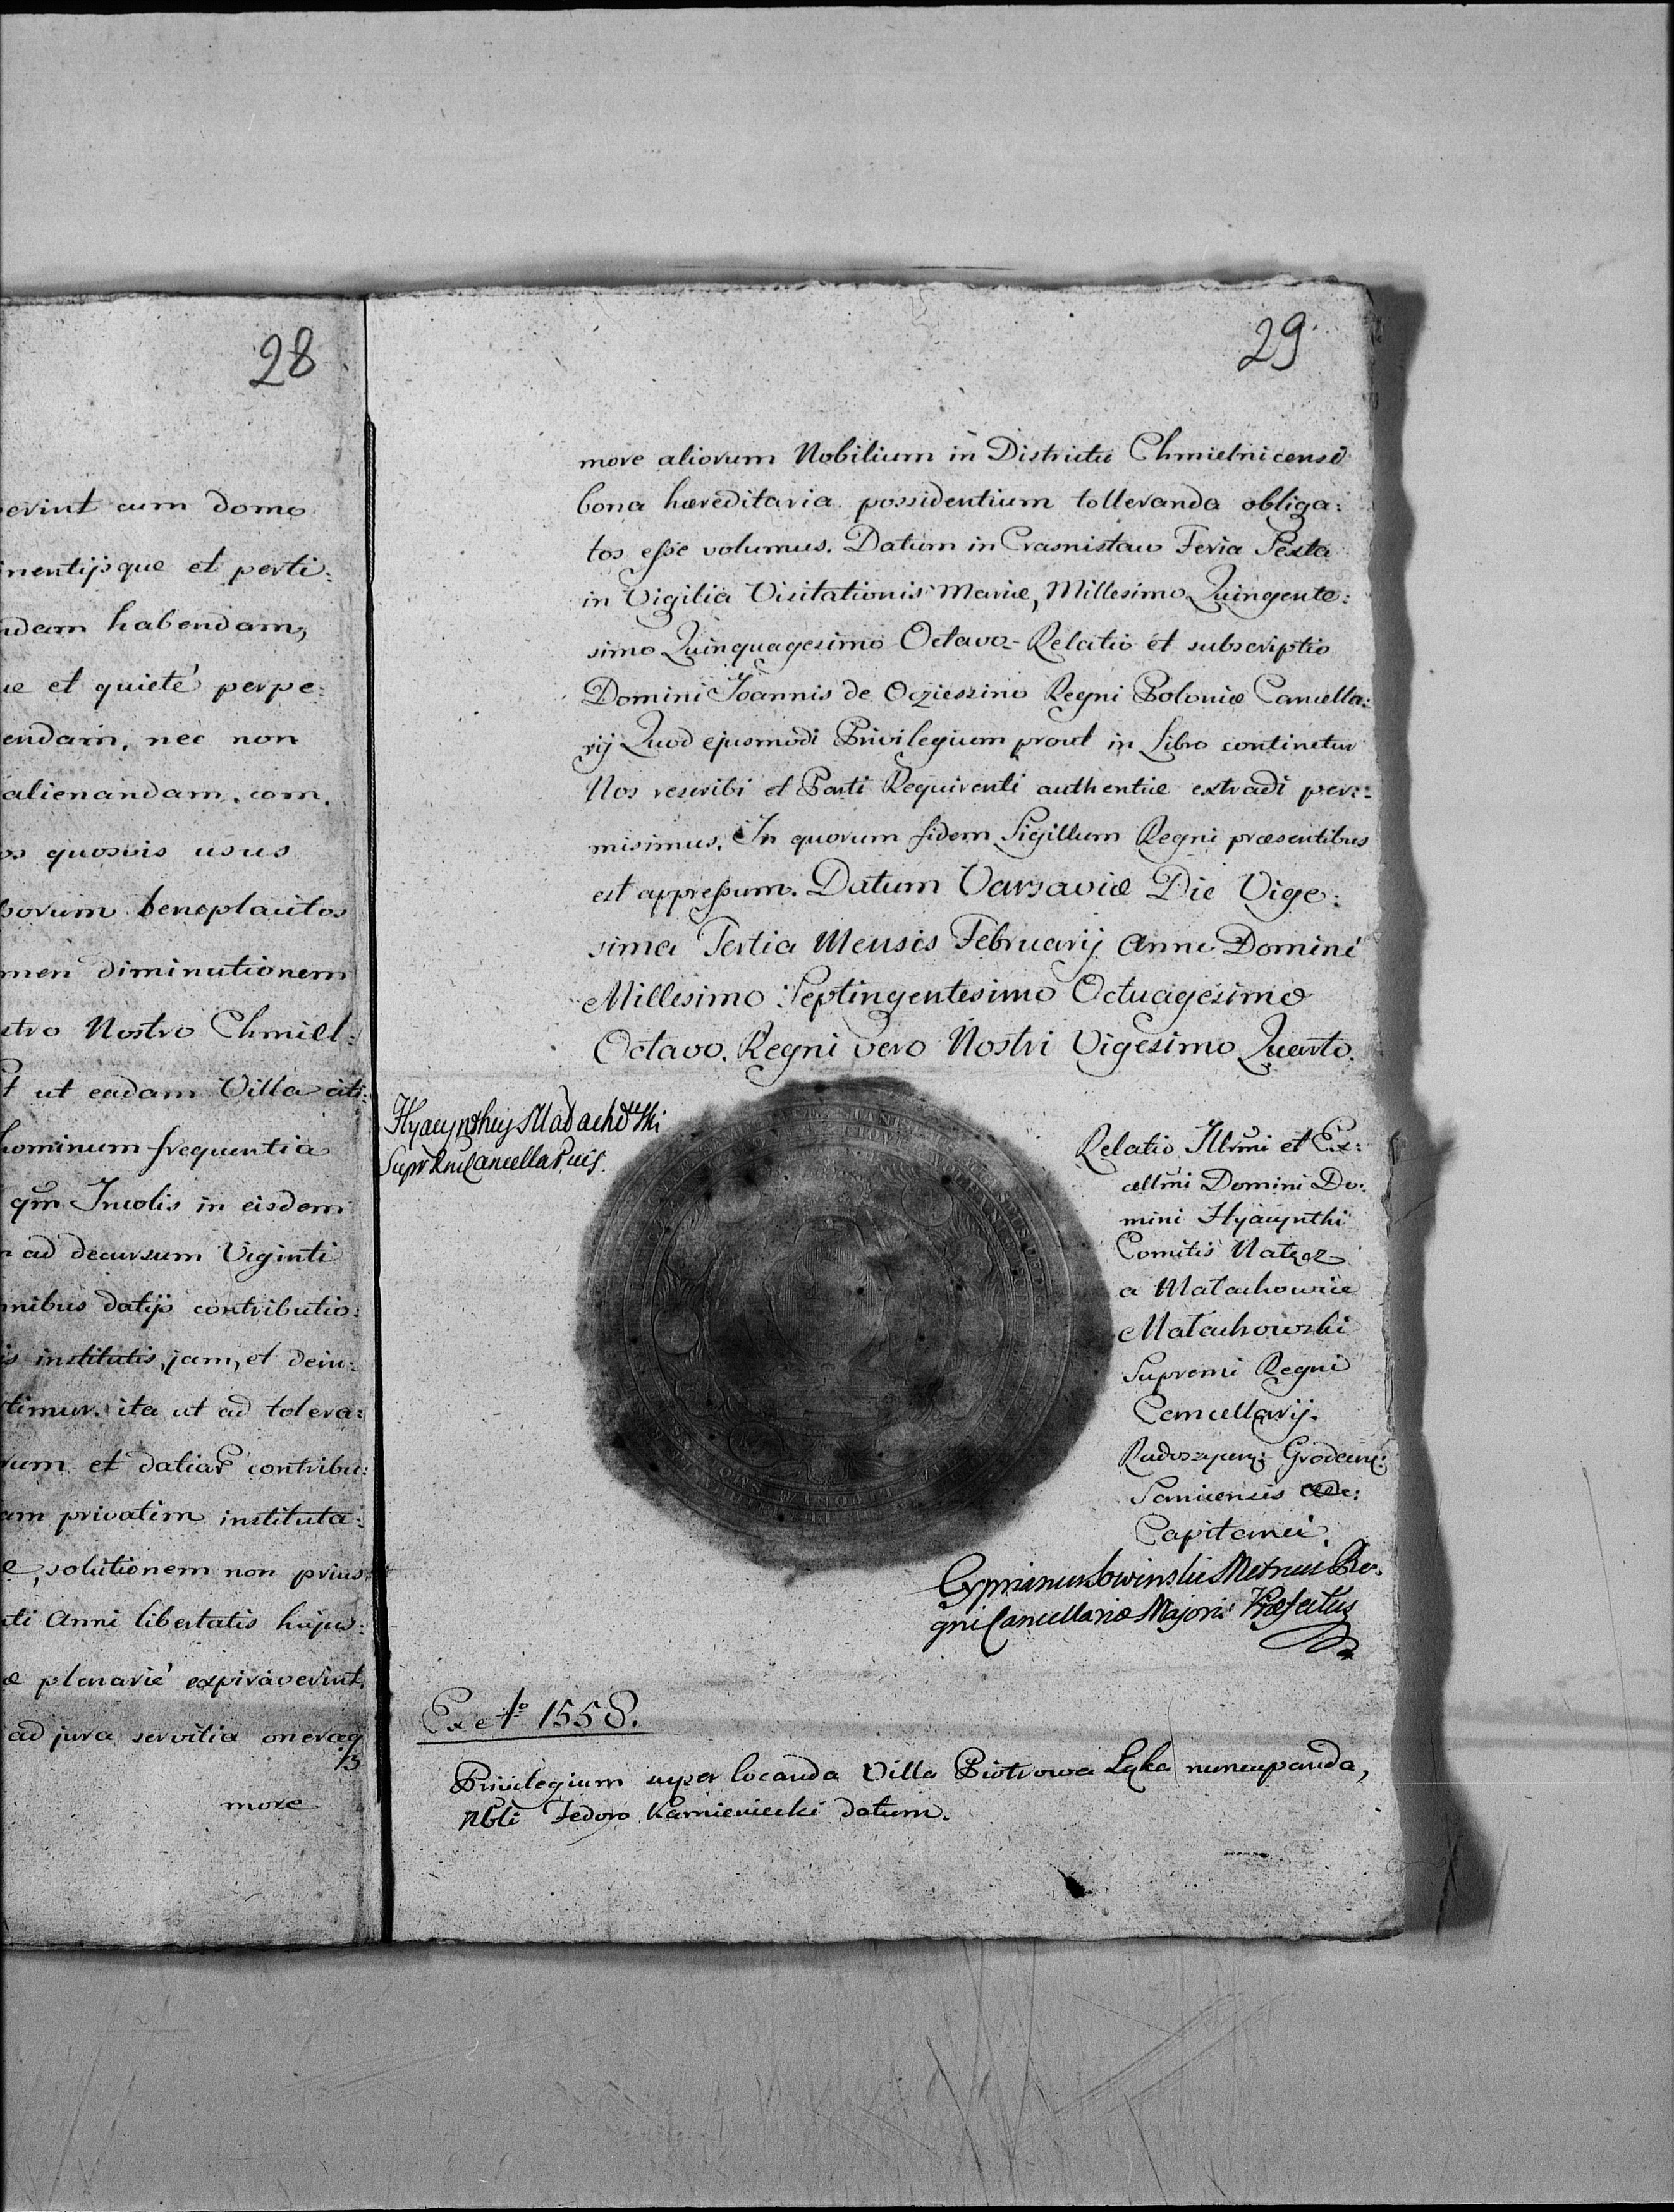 28
erint cum domo
nentijsque et perti:
ndam habendam,
ue et quieté perpe:
endam, nec non
alienandam, com.
os quosvis usus
sorum beneplacitos
men diminutionem
stro Nostro Chmiel:
t ut eadam Villa citi:
hominum frequentia
qm̃ Incolis in eisdem
ad decursum Viginti
mnibus datijs contributio:
is institutis, jam, et dein:
timur. ita ut ad tolera:
rum et datiar contribu:
am privatim instituta:
e, solutionem non prius
ti Anni libertatis hujus:
æ plenarié expiraverint,
ad jura servitia oneraq
more
29
more aliorum Nobilium in Districtu Chmielnicensi
bona hæreditaria possidentium tolleranda obliga:
tos esse volumus. Datum in Crasnistaw Feria Sexta
in Vigilia Visitationis Mariæ, Millesimo Quingente:
simo Quinquagesimo Octavo - Relatio et subscriptio
Domini Joannis de Ocziessino Regni Poloniæ Cancella:
rij Quod ejusmodi Privilegium prout in Libro continetur
Nos rescribi et Parti Requirenti authenticè extradi per:
misimus. In quorum fidem Sigillum Regni præsentibus
est appressum. Datum Varsaviæ Die Vige:
sima Tertia Mensis Februarij Anno Domini
Millesimo Septingentesimo Octuagesimo
Octavo. Regni vero Nostri Vigesimo Quarto.
Hyacynthus Małachowski
Supr Rni Cancellarius.
Relatio Illrmi et Ex:
cellmi Domini Do:
mini Hyacynthi
Comitis Nałęcz
a Małachowice
Małachowski
Supremi Regni
Cancellarij.
Grodecen:
Sanicensis
Capitanei.
Cyprianus Sowinski Metrices Re:
gni Cancellariæ Majoris Præfectus
1558.
Privilegium super locanda Villa Piotrowa Łąka nuncupanda,
Nbli Fedoro Kamieniecki datum.